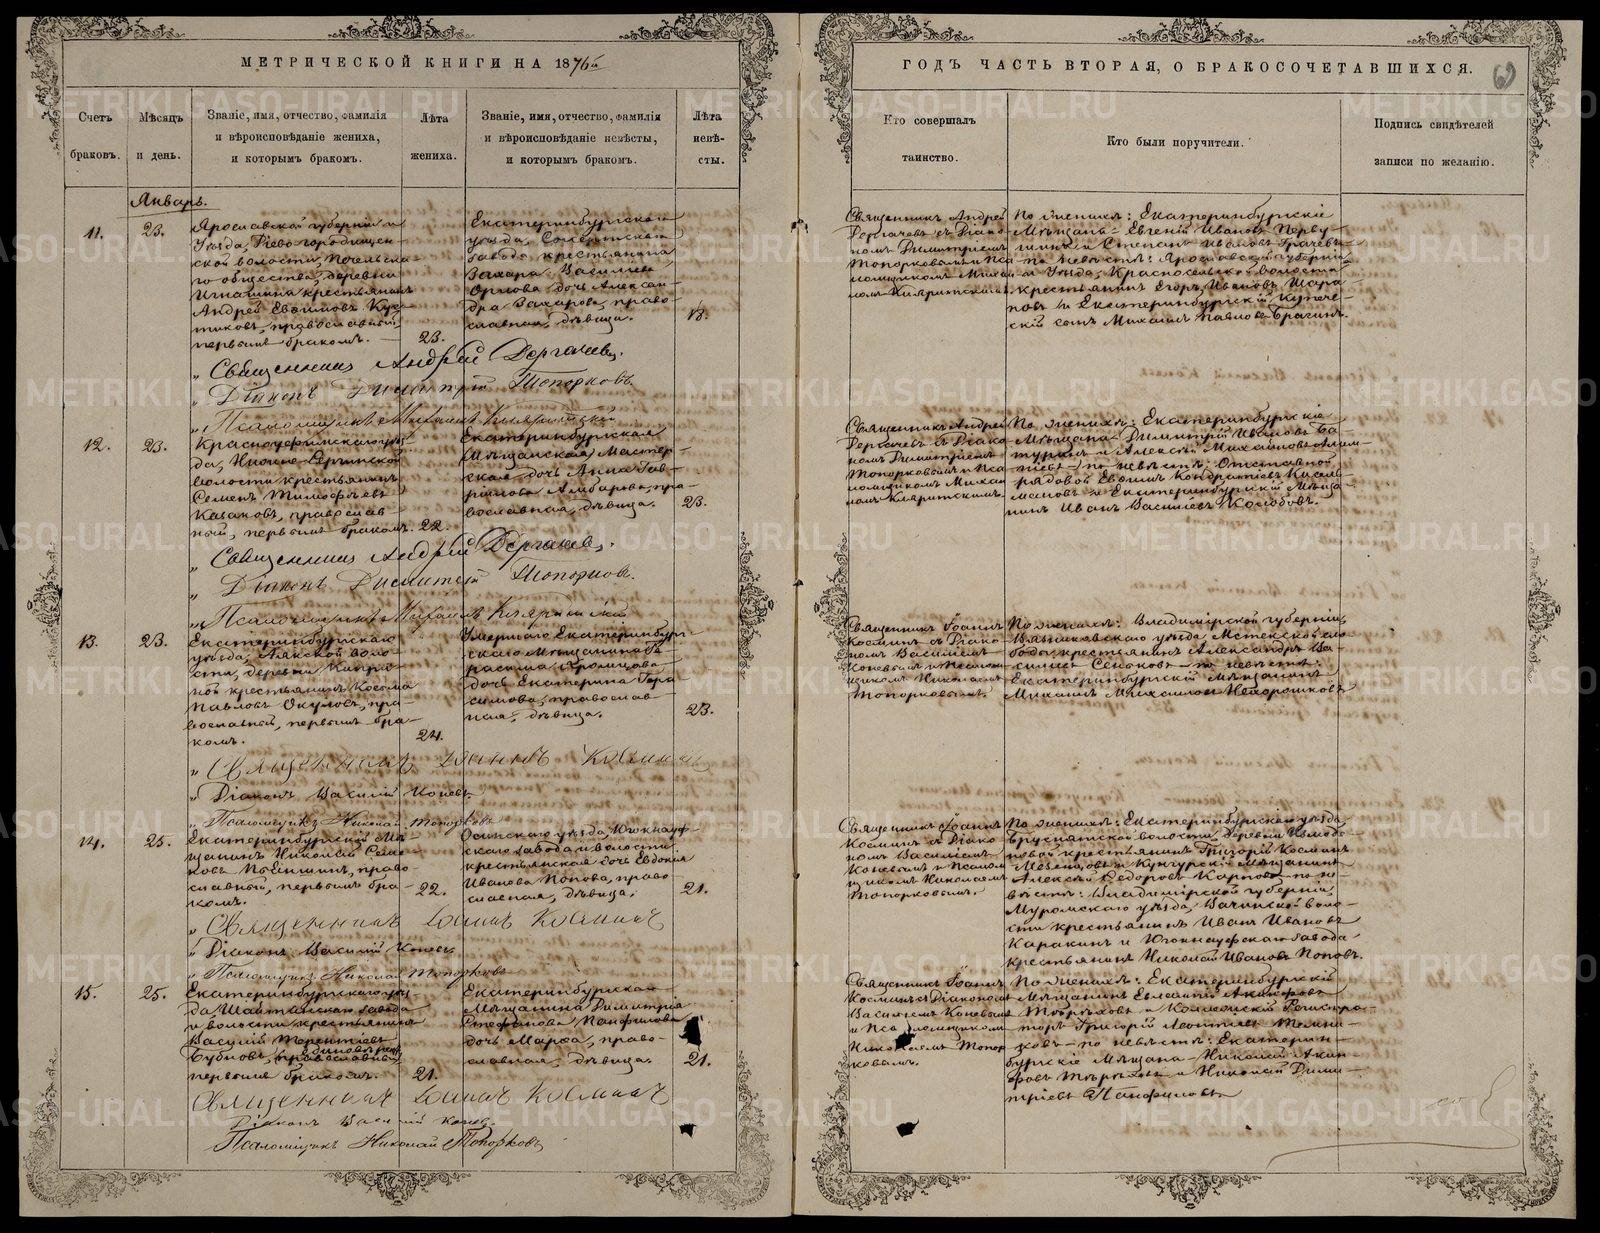 МЕТРИЧЕСКОЙ КНИГИ НА 1876й
ГОДЪ ЧАСТЬ ВТОРАЯ, О БРАКОСОЧЕТАВШИХСЯ.
69
Счетъ браковъ.
Мѣсяцъ и день.
Званіе, имя, отчество, фамилія
и вѣроисповѣданіе жениха,
и которымъ бракомъ.
Лѣта жениха.
Званіе, имя, отчество, фамилія
и вѣроисповѣданіе невѣсты,
и которымъ бракомъ.
Лѣта невѣ-
сты.
Кто совершалъ
таинство.
Кто были поручители.
Подпись свидѣтелей
записи по желанію.
Январь.
11.
23.
Ярославской губерніи и
Уѣзда,
ской волости,
го общества, деревни
крестьянинъ
Андрей Евѳимовъ
православный,
первымъ бракомъ.
23.
Екатеринбургскаго
уѣзда, Сысертскаго
завода крестьянина
Захара Васильева
Орлова дочь Алексан-
дра Захарова, право-
славная, дѣвица.
18.
Священникъ Андрей
Дергачевъ съ Діако-
номъ Димитріемъ
Топорковымъ и Пса-
ломщикомъ Михаи-
ломъ
По женихѣ: Екатеринбургскіе
Мѣщане Евгеній Ивановъ Перву-
шинъ и Степанъ Ивановъ Грачевъ
по невѣстѣ: Ярославской губерніи
и Уѣзда, Красносельской волости
крестьянинъ Егоръ Ивановъ Шара-
повъ и Екатеринбургскій Купече-
скій сынъ Михаилъ Павловъ Брагинъ.
Священникъ Андрей Дергачевъ.
Діаконъ Димитрій Топорковъ.
Псаломщикъ Михаилъ
12.
23.
Красноуфимскаго уѣз-
да, Нижне-Сергинской
волости крестьянинъ
Семенъ Тимофѣевъ
Казаковъ, православ
ный, первымъ бракомъ.
22.
Екатеринбургская
Мѣщанская
дочь Анна Гав-
рилова Амбарова, пра-
вославная, дѣвица.
23.
Священникъ Андрей
Дергачевъ съ Діако-
номъ Димитріемъ
Топорковымъ и Пса
ломщикомъ Михаи
ломъ
По женихѣ: Екатеринбургскіе
Мѣщане Димитрій Ивановъ Ба-
туринъ и Алексѣй Михайловъ
по невѣстѣ: Отставной
рядовой Евѳимъ Кондратьевъ
и Екатеринбургскій Мѣща-
нинъ Иванъ Васильевъ Колобовъ.
Священникъ Андрей Дергачевъ.
Діаконъ Димитрій Топорковъ.
Псаломщикъ Михаилъ
13.
23.
Екатеринбургскаго
уѣзда, Аятской воло-
сти, деревни
крестьянинъ Косьма
Павловъ Окуловъ, пра-
вославный, первымъ бра-
комъ.
24.
Умершаго Екатеринбург-
скаго Мѣщанина Ге-
расима
дочь Екатерина Гера
симова, православ-
ная, дѣвица.
23.
Священникъ Іоаннъ
Косминъ съ Діако-
номъ Василіемъ
Коневымъ и Псалом-
щикомъ Николаемъ
Топорковымъ.
По женихѣ: Владимірской губерніи,
Вязниковскаго уѣзда, Мстёрской сло-
боды крестьянинъ Александръ Ва-
сильевъ Сеньковъ по невѣстѣ:
Екатеринбургскій Мѣщанинъ
Михаилъ Михайловъ Нехорошковъ
Священникъ Іоаннъ Косминъ
Діаконъ Василій Коневъ.
Псаломщикъ Николай Топорковъ
14.
25.
Екатеринбургскій Мѣ-
щанинъ Николай
право-
славный, первымъ бра-
комъ.
22.
Осинскаго уѣзда, Югокнауф-
скаго завода и волости
крестьянская дочь Евдокія
Иванова Попова, право
славная, дѣвица.
21.
Священникъ Іоаннъ
Косминъ съ Діако
номъ Василіемъ
Коневымъ и Псалом
щикомъ Николаемъ
Топорковымъ.
По женихѣ: Екатеринбургскаго уѣзда,
Бруснятской волости, деревни
крестьянинъ Григорій Космин
и Кунгурскій Мѣщанинъ
Алексѣй Ѳедоровъ Карповъ по не-
вѣстѣ: Владимірской губерніи,
Муромскаго уѣзда, Вачинской воло-
сти крестьянинъ Иванъ Ивановъ
Каракинъ и Югокнауфскаго завода
крестьянинъ Николай Ивановъ Поповъ.
Священникъ Іоаннъ Косминъ
Діаконъ Василій Коневъ.
Псаломщикъ Николай Топорковъ
15.
25.
Екатеринбургскаго уѣз-
да Шайтанскаго завода
и волости крестьянинъ
Василій Терентіевъ
Бубновъ, православный
первымъ бракомъ.
21.
Екатеринбургская
Мѣщанина Димитрія
Стефанова Панфилова
дочь Марѳа, право-
славная, дѣвица.
21.
Священникъ Іоаннъ
Косминъ съ Діакономъ
Василіемъ Коневымъ
и Псаломщикомъ
Николаемъ Топор
ковымъ.
По женихѣ: Екатеринбургскій
Мѣщанинъ Евлампій Акинфовъ
и Коллежскій Регистра-
торъ Григорій Леонтьевъ
по невѣстѣ: Екатерин-
бургскіе Мѣщане Николай Акин-
фовъ и Николай Дими-
тріевъ Панфиловъ
Священникъ Іоаннъ Косминъ
Діаконъ Василій Коневъ.
Псаломщикъ Николай Топорковъ
METRIKI.GASO-URAL.RU